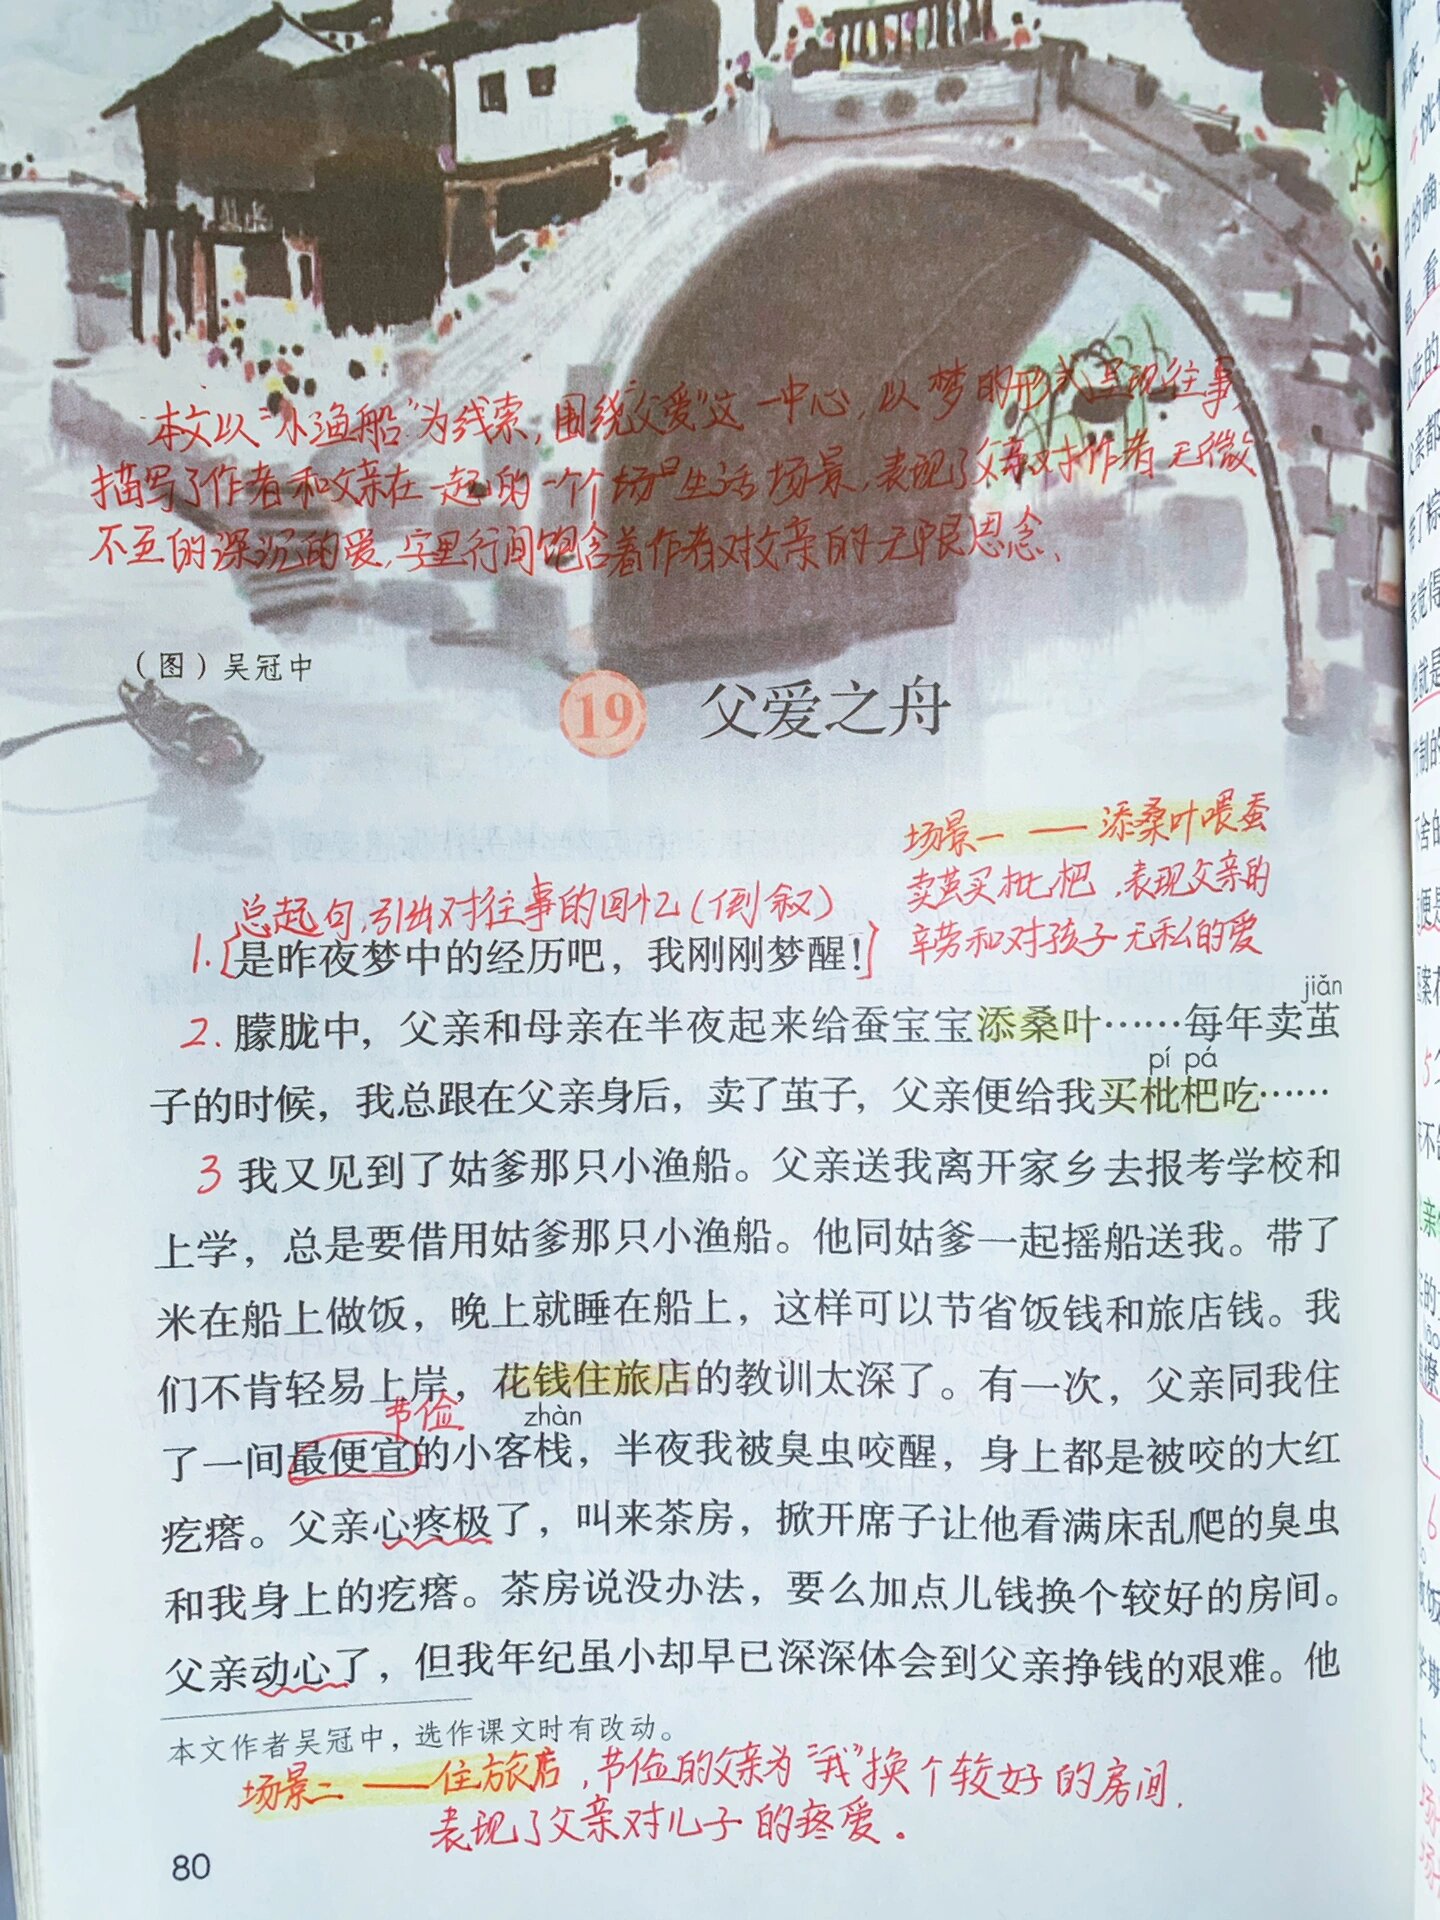 本文以“小渔船”为线索,围绕“父爱”这一中心,以梦的形式呈现往事,
描写了作者和父亲在一起的一个个场景生活场景,表现了父亲对作者无微
不至的深沉的爱,字里行间饱含着作者对父亲的无限思念、
（图）吴冠中
19 父爱之舟
场景一 —— 添桑叶喂蚕
卖茧买枇杷,表现父亲的
辛劳和对孩子无私的爱
总起句,引出对往事的回忆(倒叙)
1.[是昨夜梦中的经历吧，我刚刚梦醒！]
jiǎn
2.朦胧中，父亲和母亲在半夜起来给蚕宝宝添桑叶……每年卖茧
pí pá
子的时候，我总跟在父亲身后，卖了茧子，父亲便给我买枇杷吃……
3 我又见到了姑爹那只小渔船。父亲送我离开家乡去报考学校和
上学，总是要借用姑爹那只小渔船。他同姑爹一起摇船送我。带了
米在船上做饭，晚上就睡在船上，这样可以节省饭钱和旅店钱。我
们不肯轻易上岸，花钱住旅店的教训太深了。有一次，父亲同我住
节俭 zhàn
了一间最便宜的小客栈，半夜我被臭虫咬醒，身上都是被咬的大红
疙瘩。父亲心疼极了，叫来茶房，掀开席子让他看满床乱爬的臭虫
和我身上的疙瘩。茶房说没办法，要么加点儿钱换个较好的房间。
父亲动心了，但我年纪虽小却早已深深体会到父亲挣钱的艰难。他
本文作者吴冠中，选作课文时有改动。
场景二 —— 住旅店,节俭的父亲为“我”换个较好的房间,
表现了父亲对儿子的疼爱。
80